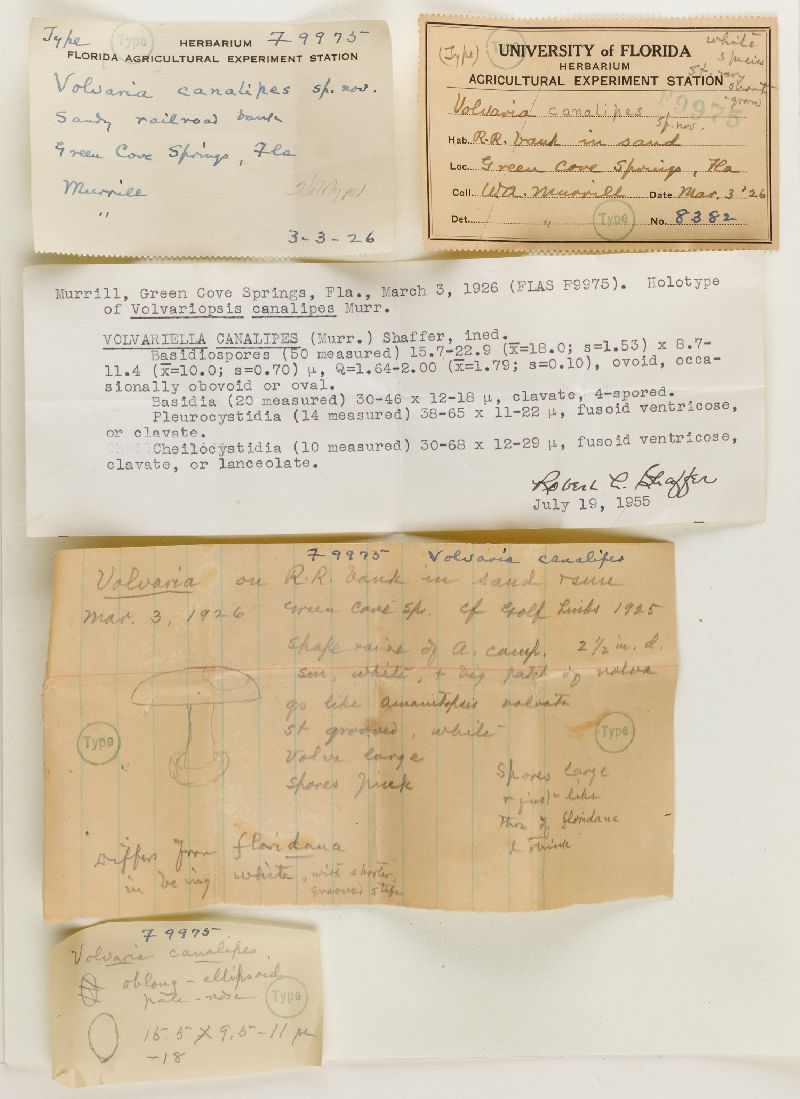 Type Type HERBARIUM F 9975
FLORIDA AGRICULTURAL EXPERIMENT STATION
Volvaria canalipes sp. nov.
Sandy railroad bank
Green Cove Springs, Fla
Murrill
"
3-3-26
(Type) UNIVERSITY of FLORIDA
HERBARIUM
AGRICULTURAL EXPERIMENT STATION
white
species
st. very
short
grooved
F9975
Volvaria canalipes
sp. nov.
Hab. R.R. bank in sand
Loc. Green Cove Springs, Fla
Coll. W.A. Murrill Date Mar. 3 '26
Det. " Type No. 8382
Murrill, Green Cove Springs, Fla., March 3, 1926 (FLAS F9975). Holotype
of Volvariopsis canalipes Murr.
VOLVARIELLA CANALIPES (Murr.) Shaffer, ined.
Basidiospores (50 measured) 15.7-22.9 (x̄=18.0; s=1.53) x 8.7-
11.4 (x̄=10.0; s=0.70) µ, Q=1.64-2.00 (x̄=1.79; s=0.10), ovoid, occa-
sionally obovoid or oval.
Basidia (20 measured) 30-46 x 12-18 µ, clavate, 4-spored.
Pleurocystidia (14 measured) 38-65 x 11-22 µ, fusoid ventricose,
or clavate.
Cheilocystidia (10 measured) 30-68 x 12-29 µ, fusoid ventricose,
clavate, or lanceolate.
Robert L. Shaffer
July 19, 1955
F 9975 Volvaria canalipes
Volvaria on R.R. bank in sand
Mar. 3, 1926 Green Cove Sps. cf Golf Links 1925
Shape & size of A. camp. 2 1/2 in. d.
sm, white, + big patch of volva
gs like Amanitopsis volvata
st grooved, white
Volva large
Spores pink
Type
Type
Spores large
like
those of floridana
I think
Differs from floridana
in being white, with shorter,
grooved stipe
F 9975
Volvaria canalipes.
oblong-ellipsoid
pale-rose
Type
15.5 x 9.5-11 µ
-18